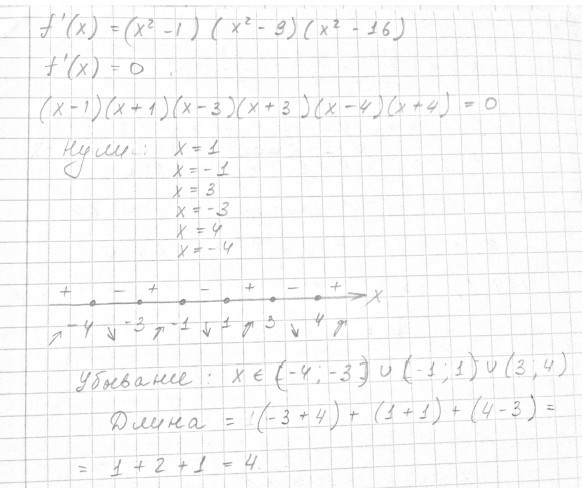 f'(x) = (x² - 1) (x² - 9) (x² - 16)
f'(x) = 0
(x - 1) (x + 1) (x - 3) (x + 3) (x - 4) (x + 4) = 0
Нули: x = 1
x = -1
x = 3
x = -3
x = 4
x = -4
+ - + - + - + x
↗ -4 ↘ -3 ↗ -1 ↘ 1 ↗ 3 ↘ 4 ↗
Убывание: x ∈ [-4; -3] ∪ (-1; 1) ∪ (3; 4)
Длина = (-3 + 4) + (1 + 1) + (4 - 3) =
= 1 + 2 + 1 = 4